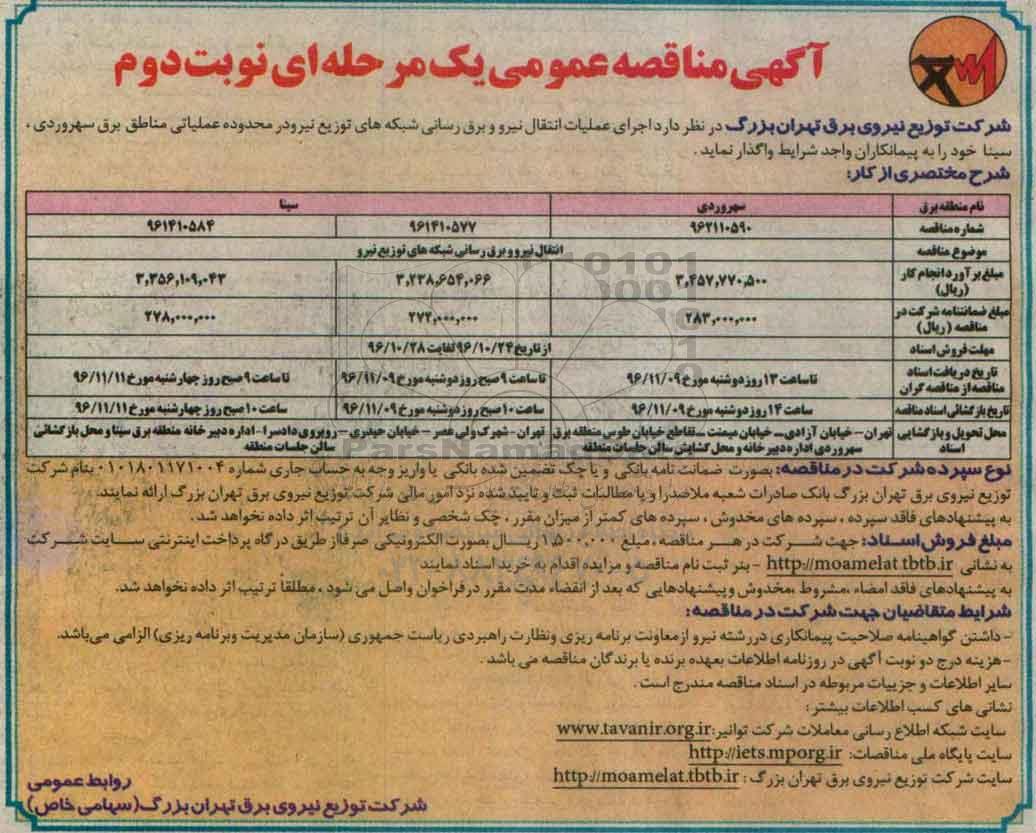 آگهی مناقصه عمومی یک مرحله ای نوبت دوم
شرکت توزیع نیروی برق تهران بزرگ در نظر دارد اجرای عملیات انتقال نیرو و برق رسانی شبکه های توزیع نیرو در محدوده عملیاتی مناطق برق سهروردی ،
سینا خود را به پیمانکاران واجد شرایط واگذار نماید .
شرح مختصری از کار:
نام منطقه برق سهروردی سینا
شماره مناقصه ۹۶۲۱۱۰۵۹۰ ۹۶۱۴۱۰۵۷۷ ۹۶۱۴۱۰۵۸۴
موضوع مناقصه انتقال نیرو و برق رسانی شبکه های توزیع نیرو
مبلغ برآورد انجام کار ۳,۴۵۷,۷۷۰,۵۰۰ ۳,۲۳۸,۶۵۴,۰۶۶ ۳,۳۵۶,۱۰۹,۰۴۳
(ریال)
مبلغ ضمانتنامه شرکت در ۲۸۳,۰۰۰,۰۰۰ ۲۷۲,۰۰۰,۰۰۰ ۲۷۸,۰۰۰,۰۰۰
مناقصه (ریال)
مهلت فروش اسناد از تاریخ ۹۶/۱۰/۲۴ لغایت ۹۶/۱۰/۲۸
تاریخ دریافت اسناد تا ساعت ۱۳ روز دوشنبه مورخ ۹۶/۱۱/۰۹ تا ساعت ۹ صبح روز دوشنبه مورخ ۹۶/۱۱/۰۹ تا ساعت ۹ صبح روز چهارشنبه مورخ ۹۶/۱۱/۱۱
مناقصه از مناقصه گران
تاریخ بازگشائی اسناد مناقصه ساعت ۱۴ روز دوشنبه مورخ ۹۶/۱۱/۰۹ ساعت ۱۰ صبح روز دوشنبه مورخ ۹۶/۱۱/۰۹ ساعت ۱۰ صبح روز چهارشنبه مورخ ۹۶/۱۱/۱۱
محل تحویل و بازگشایی تهران – خیابان آزادی – خیابان میمنت – تقاطع خیابان طوس منطقه برق تهران – شهرک ولی عصر – خیابان حیدری – روبروی دادسرا – اداره دبیرخانه منطقه برق سینا و محل بازگشائی
اسناد سهروردی اداره دبیرخانه و محل گشایش سالن جلسات منطقه سالن جلسات منطقه
نوع سپرده شرکت در مناقصه: بصورت ضمانت نامه بانکی و یا چک تضمین شده بانکی یا واریز وجه به حساب جاری شماره ۰۱۰۱۸۰۱۱۷۱۰۰۴ بنام شرکت
توزیع نیروی برق تهران بزرگ بانک صادرات شعبه ملاصدرا و یا مطالبات ثبت و تایید شده نزد امور مالی شرکت توزیع نیروی برق تهران بزرگ ارائه نمایند.
به پیشنهادهای فاقد سپرده ، سپرده های مخدوش ، سپرده های کمتر از میزان مقرر ، چک شخصی و نظایر آن ترتیب اثر داده نخواهد شد .
مبلغ فروش اسناد: جهت شرکت در هر مناقصه ، مبلغ ۱,۵۰۰,۰۰۰ ریال بصورت الکترونیکی صرفا از طریق درگاه پرداخت اینترنتی سایت شرکت
به نشانی http://moamelat.tbtb.ir - بنر ثبت نام مناقصه و مزایده اقدام به خرید اسناد نمایند
به پیشنهادهای فاقد امضاء ،مشروط ،مخدوش و پیشنهادهایی که بعد از انقضاء مدت مقرر در فراخوان واصل می شود ، مطلقا ترتیب اثر داده نخواهد شد.
شرایط متقاضیان جهت شرکت در مناقصه:
- داشتن گواهینامه صلاحیت پیمانکاری در رشته نیرو از معاونت برنامه ریزی ونظارت راهبردی ریاست جمهوری (سازمان مدیریت وبرنامه ریزی) الزامی می‌باشد.
-هزینه درج دو نوبت آگهی در روزنامه اطلاعات بعهده برنده یا برندگان مناقصه می باشد .
سایر اطلاعات و جزییات مربوطه در اسناد مناقصه مندرج است .
نشانی های کسب اطلاعات بیشتر :
سایت شبکه اطلاع رسانی معاملات شرکت توانیر: www.tavanir.org.ir
سایت پایگاه ملی مناقصات: http://iets.mporg.ir
سایت شرکت توزیع نیروی برق تهران بزرگ : http://moamelat.tbtb.ir
روابط عمومی
شرکت توزیع نیروی برق تهران بزرگ (سهامی خاص)